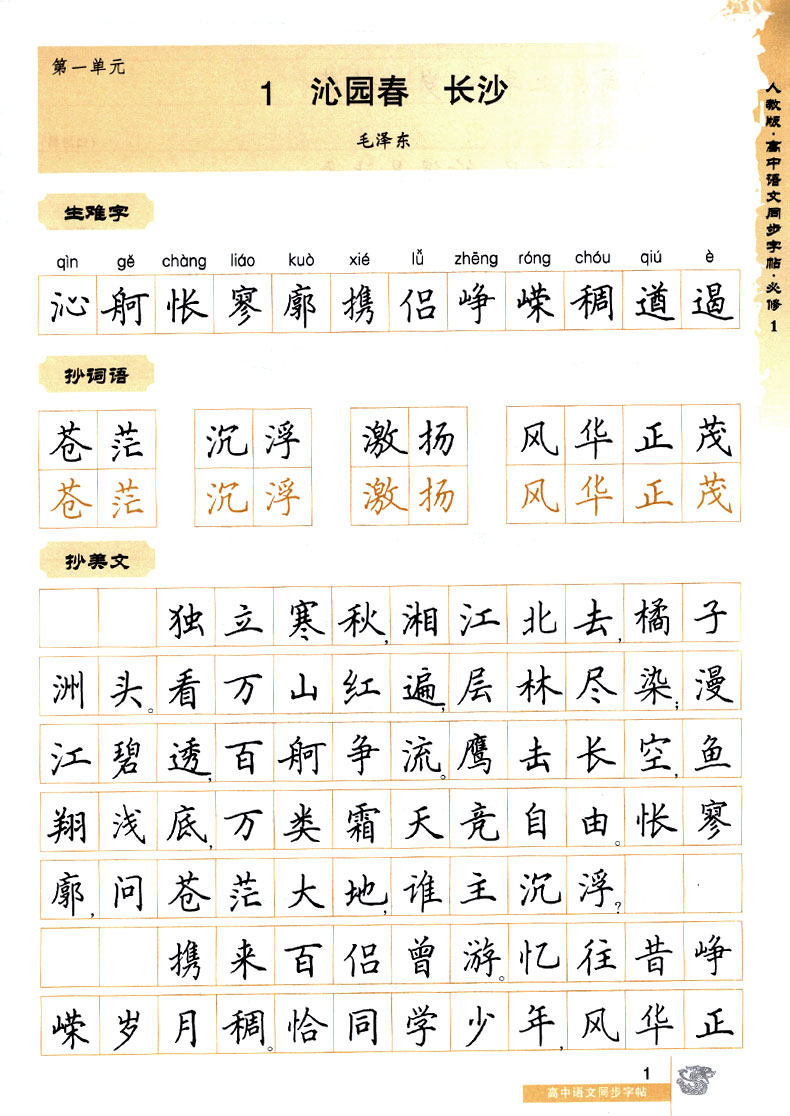 第一单元
1 沁园春 长沙
毛泽东
人教版·高中语文同步字帖·必修1
生难字
qìn gě chàng liáo kuò xié lǚ zhēng róng chóu qiú è
沁舸怅寥廓携侣峥嵘稠遒遏
抄词语
苍茫 沉浮 激扬 风华正茂
苍茫 沉浮 激扬 风华正茂
抄美文
独立寒秋,湘江北去,橘子
洲头。看万山红遍,层林尽染;漫
江碧透,百舸争流。鹰击长空,鱼
翔浅底,万类霜天竞自由。怅寥
廓,问苍茫大地,谁主沉浮?
携来百侣曾游。忆往昔峥
嵘岁月稠。恰同学少年,风华正
1
高中语文同步字帖